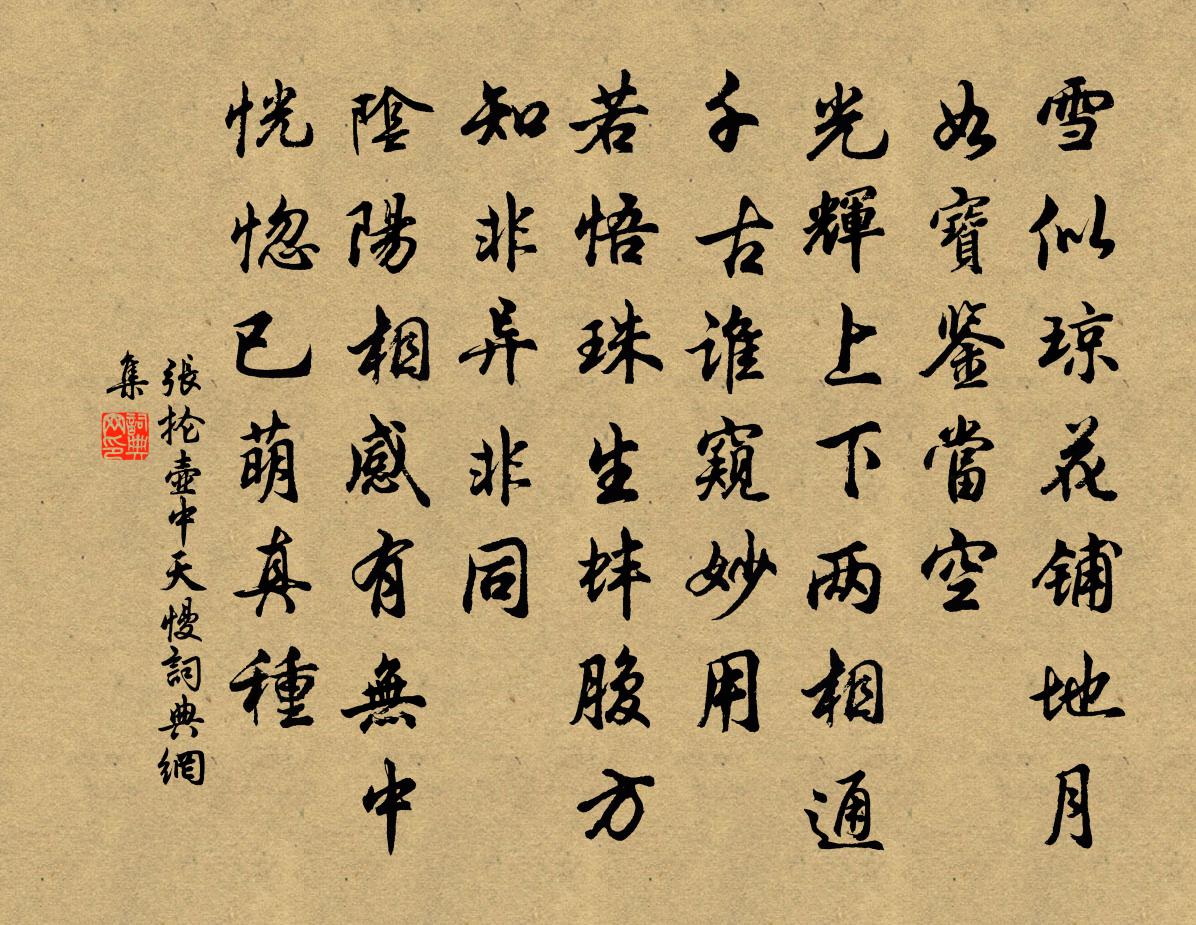 雪似琼花铺地月
如寶鉴當空
光輝上下两相通
千古谁窺妙用
若悟珠生蚌腹方
知非异非同
陰陽相感有無中
恍惚已萌真種
張抡壶中天慢詞典網
集
詞典
网印